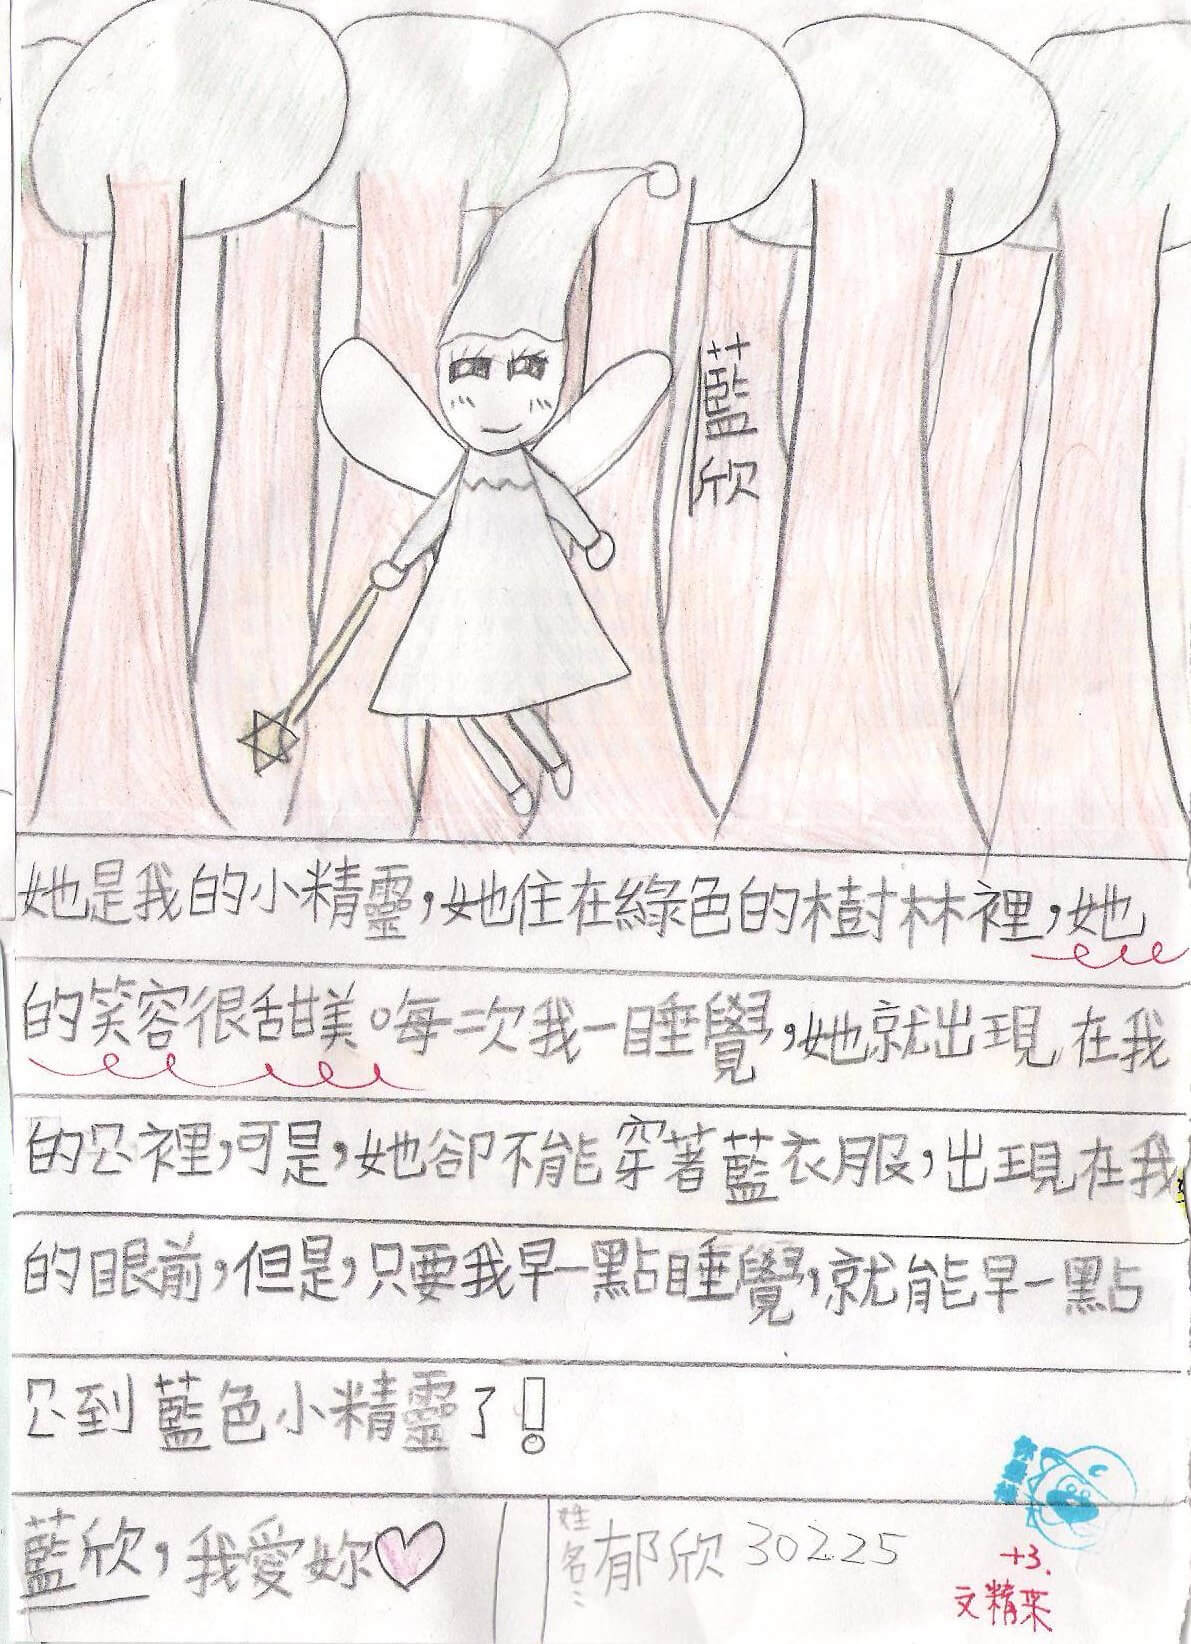 藍欣
她是我的小精靈,她住在綠色的樹林裡,她
的笑容很甜美。每次我一睡覺,她就出現在我
的裡,可是,她卻不能穿著藍衣服,出現在我
的眼前,但是,只要我早一點睡覺,就能早一點
到藍色小精靈了!
藍欣,我愛妳♡
姓名:郁欣 30225
+3.
文精采